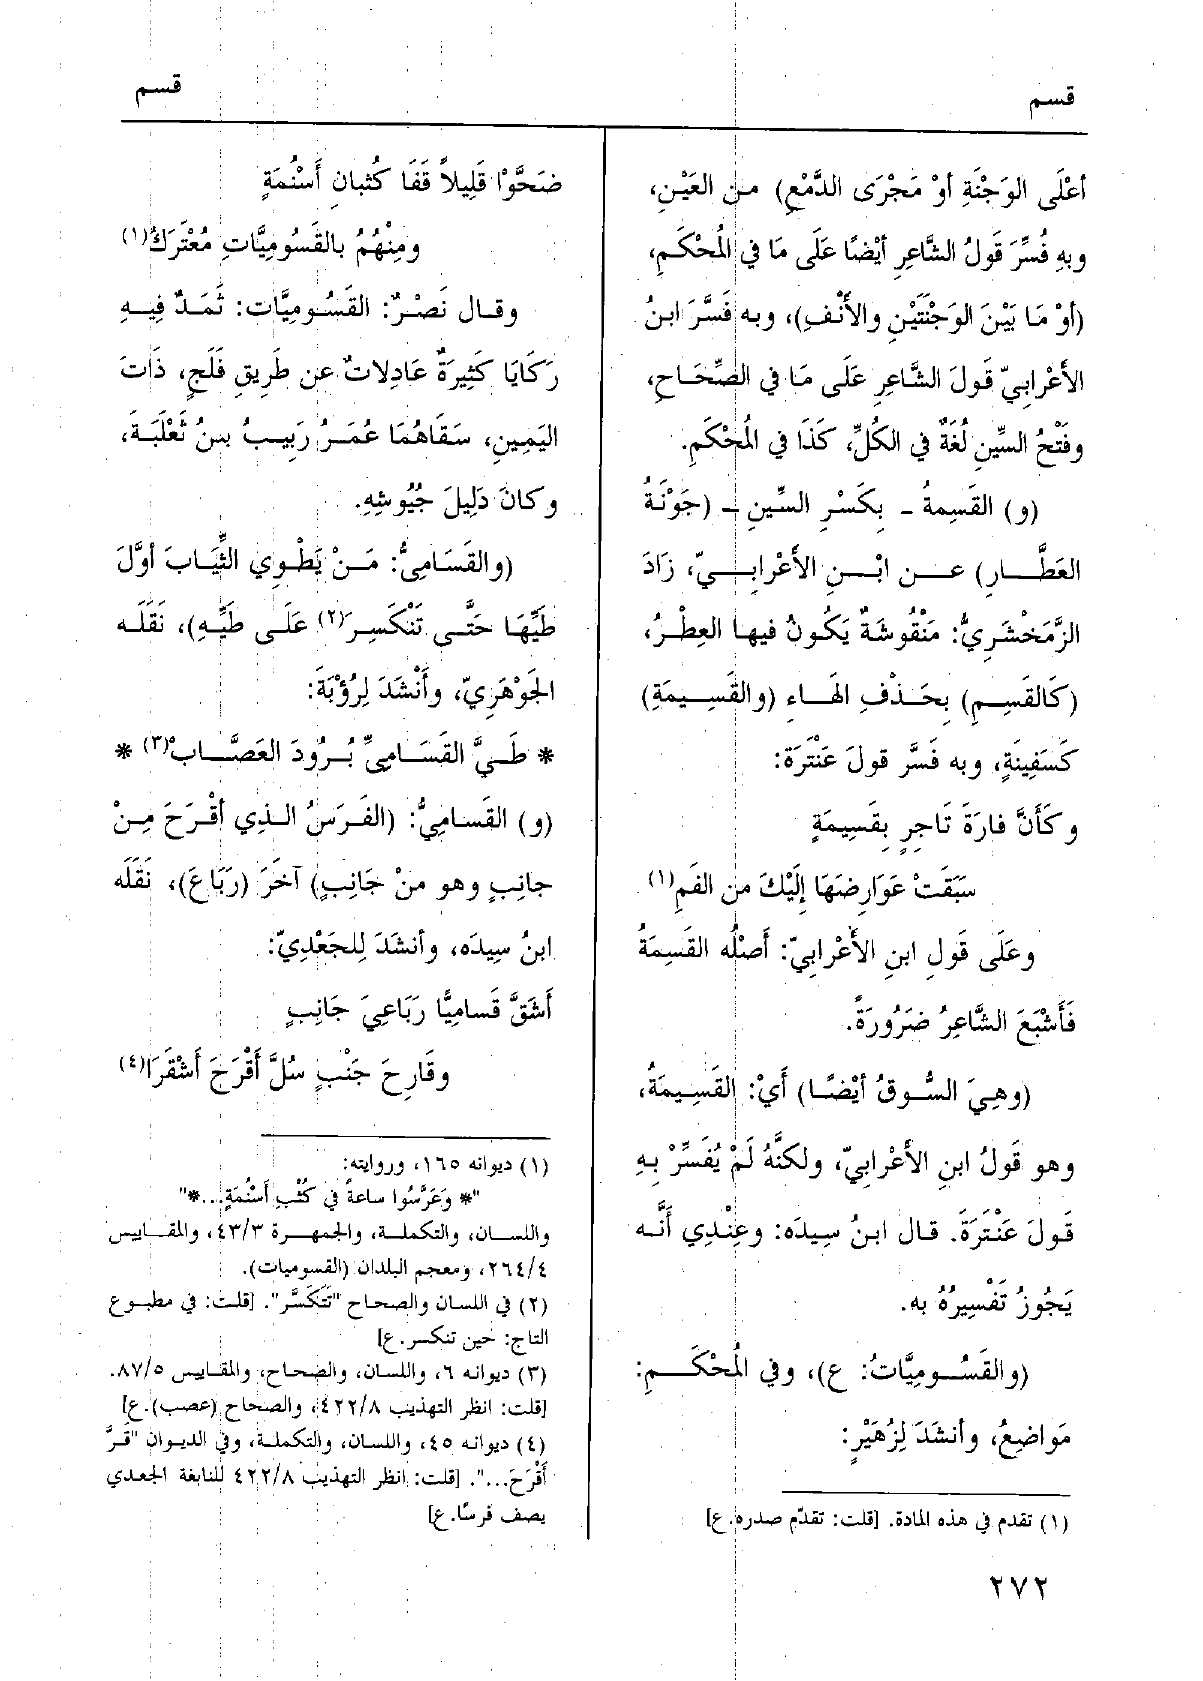 قسم
قسم
أعْلَى الوَجْنَةِ أوْ مَجْرَى الدَّمْعِ) من العَيْنِ،
وبهِ فُسِّرَ قَولُ الشَّاعِرِ أيْضًا عَلَى مَا في المُحْكَمِ،
(أوْ مَا بَيْنَ الوَجْنَتَيْنِ والأَنْفِ)، وبه فَسَّرَ ابنُ
الأَعْرابيّ قَولَ الشَّاعِرِ عَلَى مَا في الصِّحَاحِ،
وفَتْحُ السِّينِ لُغَةٌ في الكُلِّ، كَذَا في المُحْكَمِ.
(و) القَسِمةُ ـ بِكَسْرِ السِّينِ ـ (جَوْنَةُ
العَطَّارِ) عن ابْنِ الأَعْرابيّ، زَادَ
الزَّمَخْشَرِيُّ: مَنْقُوشَةٌ يَكُونُ فيها العِطْرُ،
(كَالقَسِمِ) بِحَذْفِ الهَاءِ (والقَسِيمَةِ)
كَسَفِينَةٍ، وبه فَسَّر قولَ عَنْتَرَةَ:
وكَأَنَّ فارَةَ تَاجِرٍ بِقَسِيمَةٍ
سَبَقَتْ عَوَارِضَهَا إِلَيْكَ من الفَمِ(١)
وعَلَى قَولِ ابنِ الأَعْرابيّ: أَصْلُه القَسِمَةُ
فَأَشْبَعَ الشَّاعِرُ ضَرُورَةً.
(وهِيَ السُّوقُ أيْضًا) أَيْ: القَسِيمَةُ،
وهو قَولُ ابنِ الأَعْرابيّ، ولكنَّهُ لَمْ يُفَسِّرْ بِهِ
قَولَ عَنْتَرَةَ. قال ابنُ سِيدَه: وعِنْدِي أَنَّه
يَجُوزُ تَفْسِيرُهُ به.
(والقَسُومِيَّاتُ: ع)، وفي المُحْكَمِ:
مَواضِعُ، وأنشَدَ لِزُهَيْرٍ:
(١) تقدم في هذه المادة. [قلت: تقدّم صدره. ع]
٢٧٢
ضَحَّوْا قَلِيلاً قَفَا كُثبانِ أَسْنُمَةٍ
ومِنْهُمُ بالقَسُومِيَّاتِ مُعْتَرَكُ(١)
وقال نَصْرٌ: القَسُومِيَّات: ثَمَدٌ فِيهِ
رَكَايَا كَثِيرَةٌ عَادِلاتٌ عن طَرِيقِ فَلَجٍ، ذَاتَ
اليَمِينِ، سَقَاهُمَا عُمَرُ رَبِيبُ بنُ ثَعْلَبَةَ،
وكانَ دَلِيلَ جُيُوشِهِ.
(والقَسَامِيُّ: مَنْ يَطْوِي الثِّيَابَ أوَّلَ
طَيِّهَا حَتَّى تَنْكَسِرَ(٢) عَلَى طَيِّهِ)، نَقَلَه
الجَوْهَرِيّ، وأَنْشَدَ لِرُؤْبَةَ:
* طَيَّ القَسَامِيِّ بُرُودَ العَصَّابْ(٣) *
(و) القَسامِيُّ: (الفَرَسُ الذي أقْرَحَ مِنْ
جانِبٍ وهو منْ جَانِبٍ) آخَرَ (رَبَاعَ)، نَقَلَه
ابنُ سِيدَه، وأنشَدَ لِلجَعْدِيّ:
أَشَقَّ قَساميًّا رَبَاعِيَ جَانِبٍ
وقَارِحَ جَنْبٍ سُلَّ أَقْرَحَ أَشْقَرَا(٤)
(١) ديوانه ١٦٥، وروايته:
"* وَعَرَّسُوا ساعةً في كُثْبِ أَسْنُمَةٍ...*"
واللسان، والتكملة، والجمهرة ٤٣/٣، والمقاييس
٢٦٤/٤، ومعجم البلدان (القسوميات).
(٢) في اللسان والصحاح "تَتَكَسَّر". [قلت: في مطبوع
التاج: حين تنكسر. ع]
(٣) ديوانه ٦، واللسان، والصحاح، والمقاييس ٨٧/٥.
[قلت: انظر التهذيب ٤٢٢/٨، والصحاح (عصب). ع]
(٤) ديوانه ٤٥، واللسان، والتكملة، وفي الديوان "قرَّ
أَقْرَحَ...". [قلت: انظر التهذيب ٤٢٢/٨ للنابغة الجعدي
يصف فرسًا. ع]